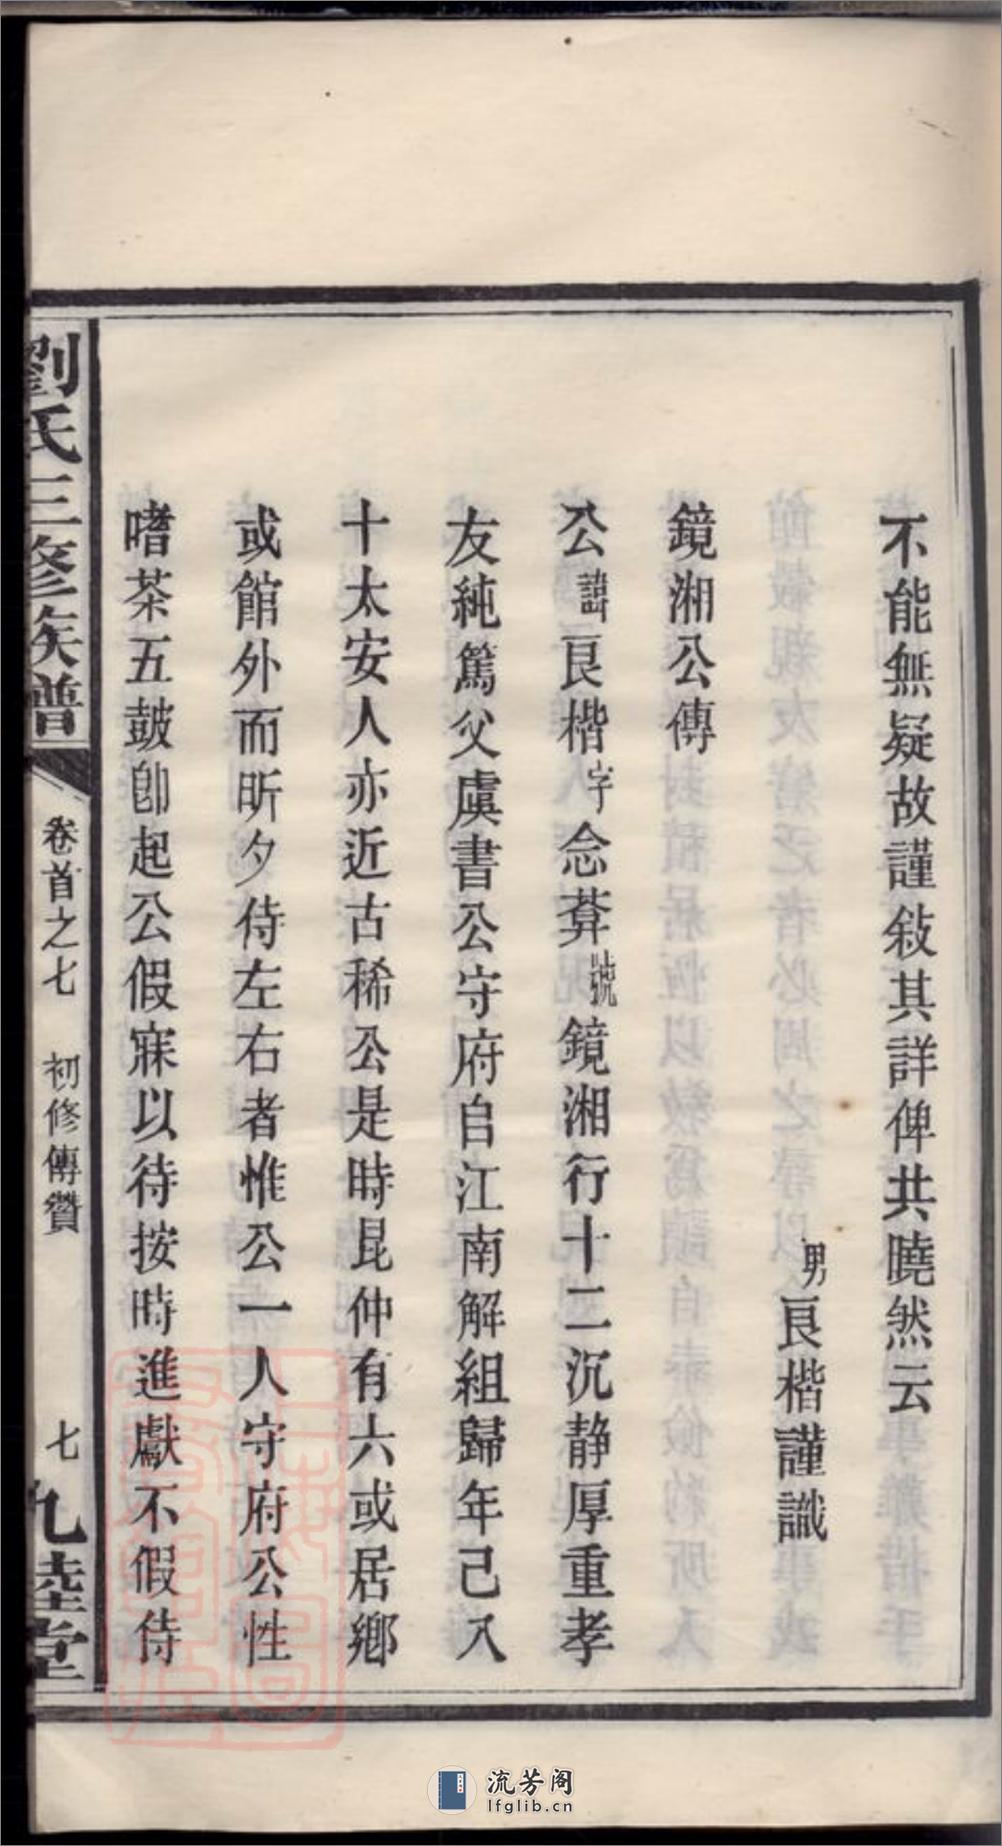 不能無疑故謹敍其詳俾共曉然云
男良楷謹識
鏡湘公傳
公諱良楷字念葊號鏡湘行十二沉静厚重孝
友純篤父虞書公守府自江南解組歸年己入
十太安人亦近古稀公是時昆仲有六或居鄉
或館外而昕夕侍左右者惟公一人守府公性
嗜茶五鼓卽起公假寐以待按時進獻不假侍
劉氏三修族譜
卷首之七 初修傳贊
七
九陸堂
流芳阁
lfglib.cn